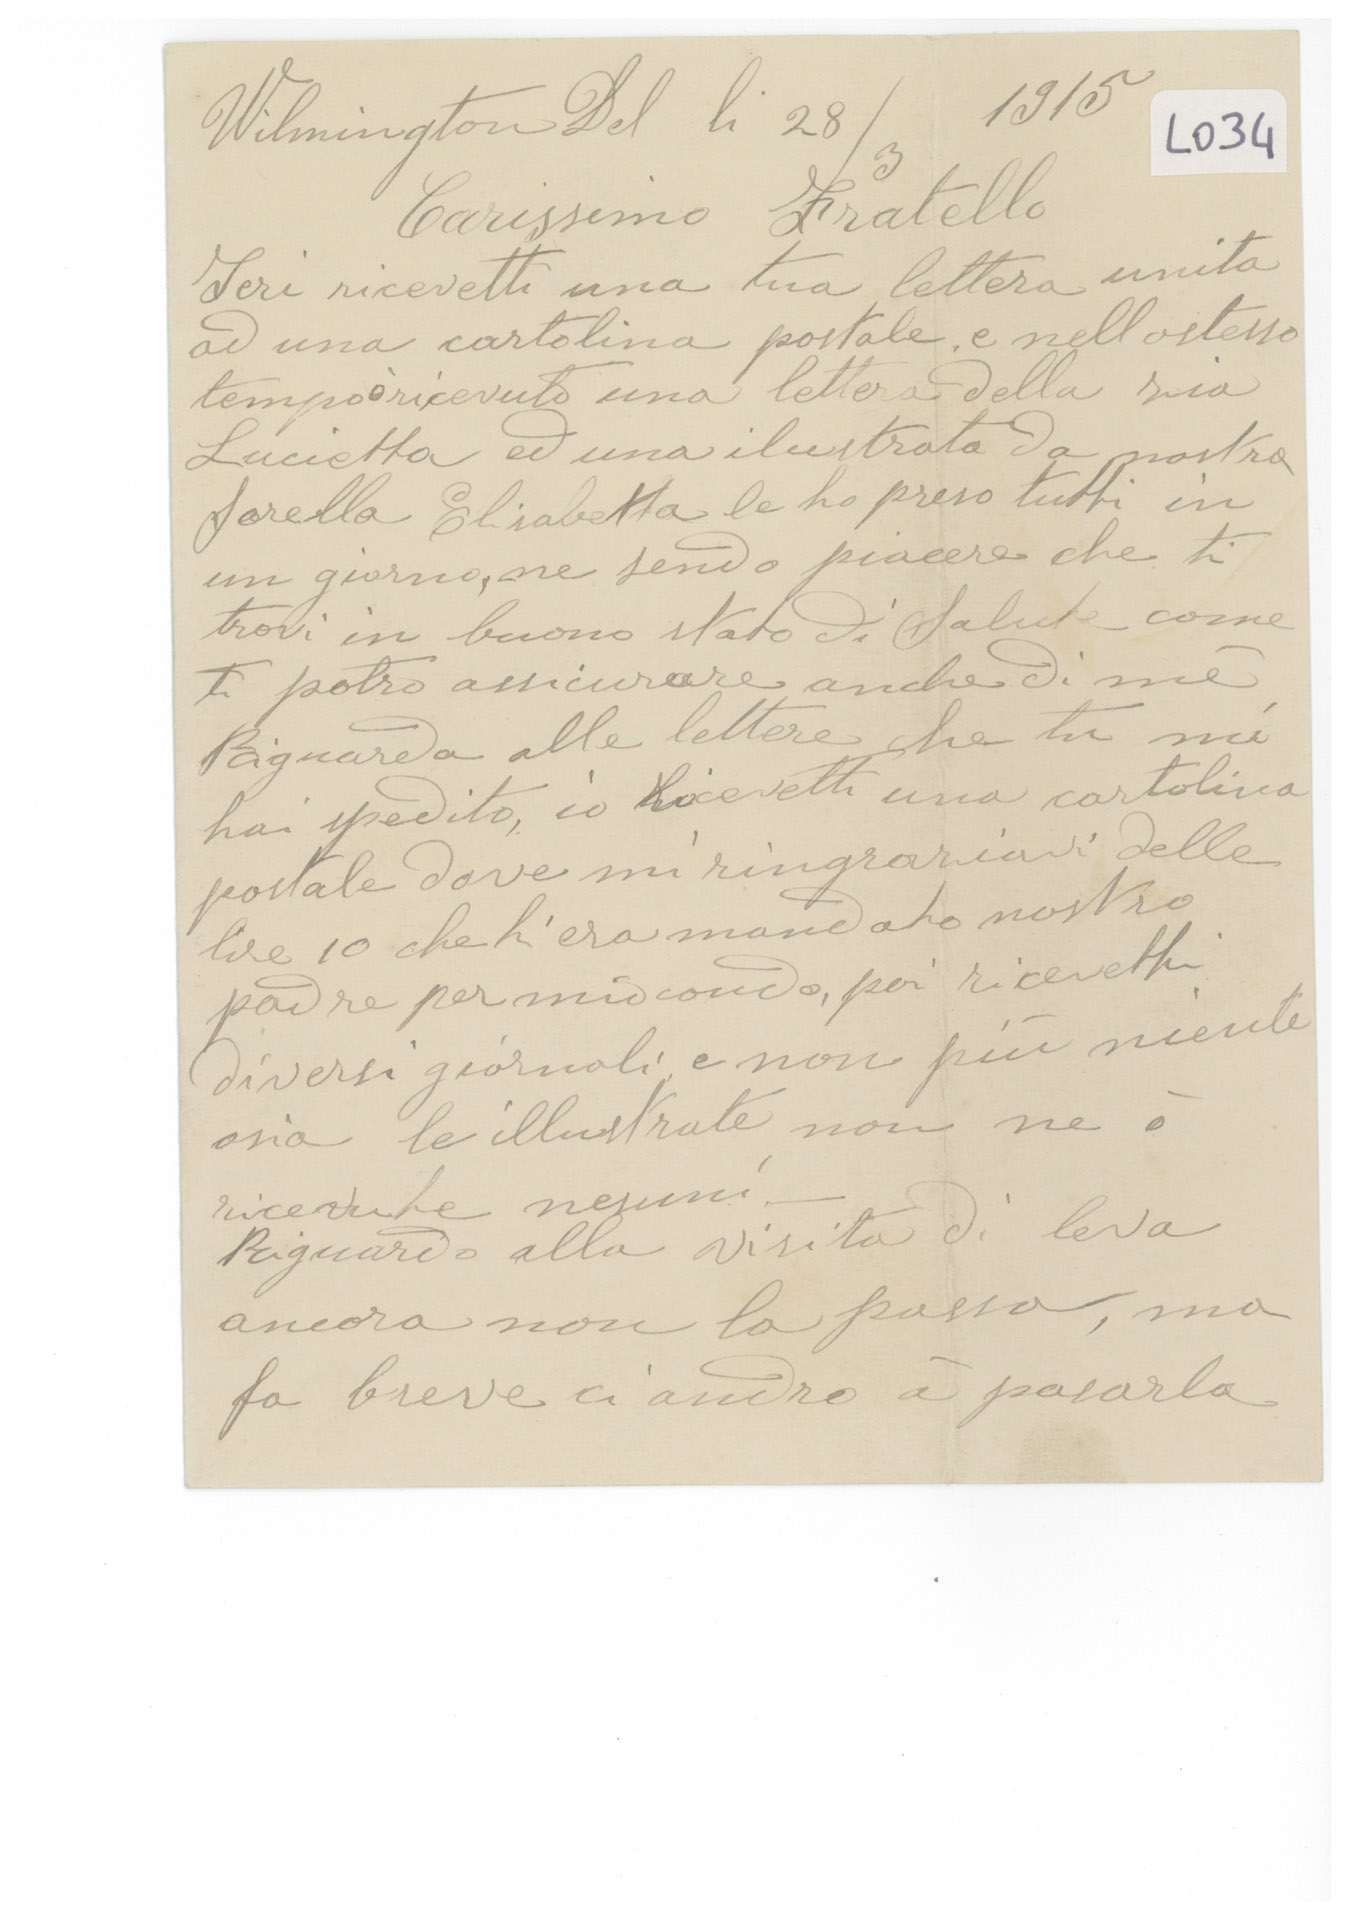 Wilmington Del li 28/3 1915
L034
Carissimo Fratello
Ieri ricevetti una tua lettera unita
ad una cartolina postale, e nell ostesso
tempo ò ricevuto una lettera della zia
Lucietta ed una ilustrata da nostra
Sorella Elisabetta le ho preso tutti in
un giorno, ne sendo piacere che ti
trovi in buono stato di Salute come
ti potro assicurare anche di mè
Riguarda alle lettere che tu mi
hai spedito, io ricevetti una cartolina
postale dove mi ringraziavi delle
lire 10 che ti era mandato nostro
padre per mio condo, poi ricevetti
diversi giornali, e non più niente
osia le illustrate non ne ò
ricevute nesuni —
Riguardo alla visita di leva
ancora non la passa, ma
fa breve ci andro à pasarla